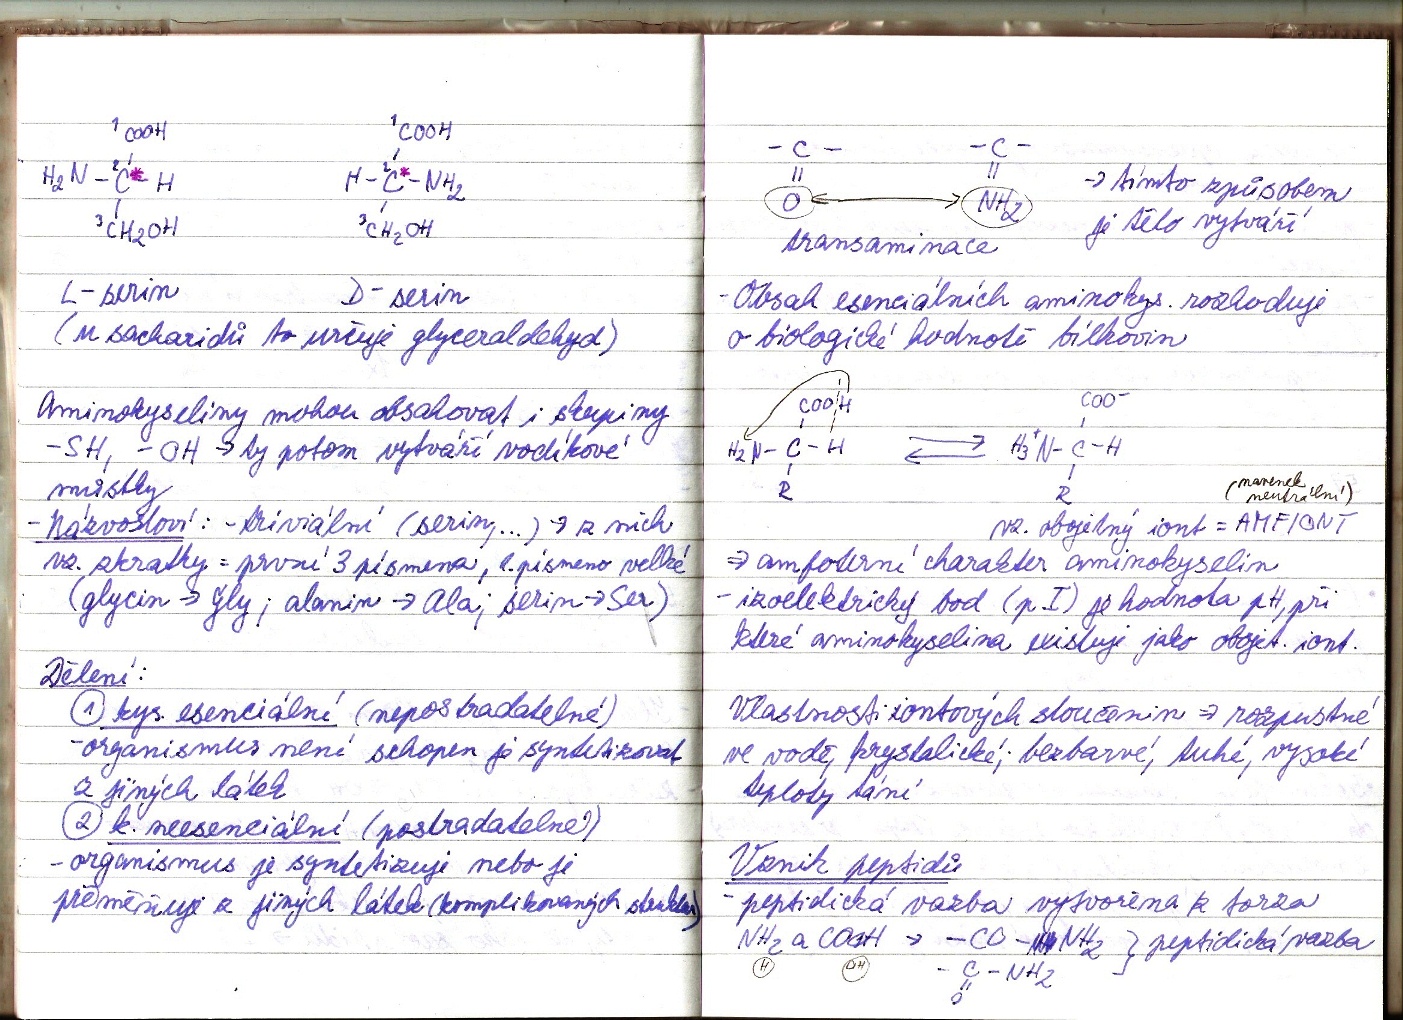 ¹COOH ¹COOH
H₂N – ²C* – H H – ²C* – NH₂
³CH₂OH ³CH₂OH
L – serin D – serin
(u sacharidů to určuje glyceraldehyd)
Aminokyseliny mohou obsahovat i skupiny
– SH, – OH → ty potom vytváří vodíkové
můstky
- Názvosloví: - triviální (serin, ...) → z nich
vz. zkratky = první 3 písmena, 1. písmeno velké
(glycin → Gly; alanin → Ala; serin → Ser)
Dělení:
① kys. esenciální (nepostradatelné)
- organismus není schopen je syntetizovat
z jiných látek
② k. neesenciální (postradatelné)
- organismus je syntetizuje nebo je
přeměňuje z jiných látek (komplikovaných struktur)
– C – – C –
O ↔ NH₂ → tímto způsobem
transaminace je tělo vytváří
- Obsah esenciálních aminokys. rozhoduje
o biologické hodnotě bílkovin
COOH COO⁻
H₂N – C – H ⇌ H₃⁺N – C – H
R R
(navenek
neutrální)
vz. obojetný iont = AMFIONT
⇒ amfoterní charakter aminokyselin
- izoelektrický bod (pI) je hodnota pH, při
které aminokyselina existuje jako obojet. iont.
Vlastnosti iontových sloučenin ⇒ rozpustné
ve vodě, krystalické; bezbarvé, tuhé, vysoké
teploty tání
Vznik peptidů
- peptidická vazba vytvořena z torza
NH₂ a COOH → – CO – NH₂ } peptidická vazba
H OH – C – NH₂
O